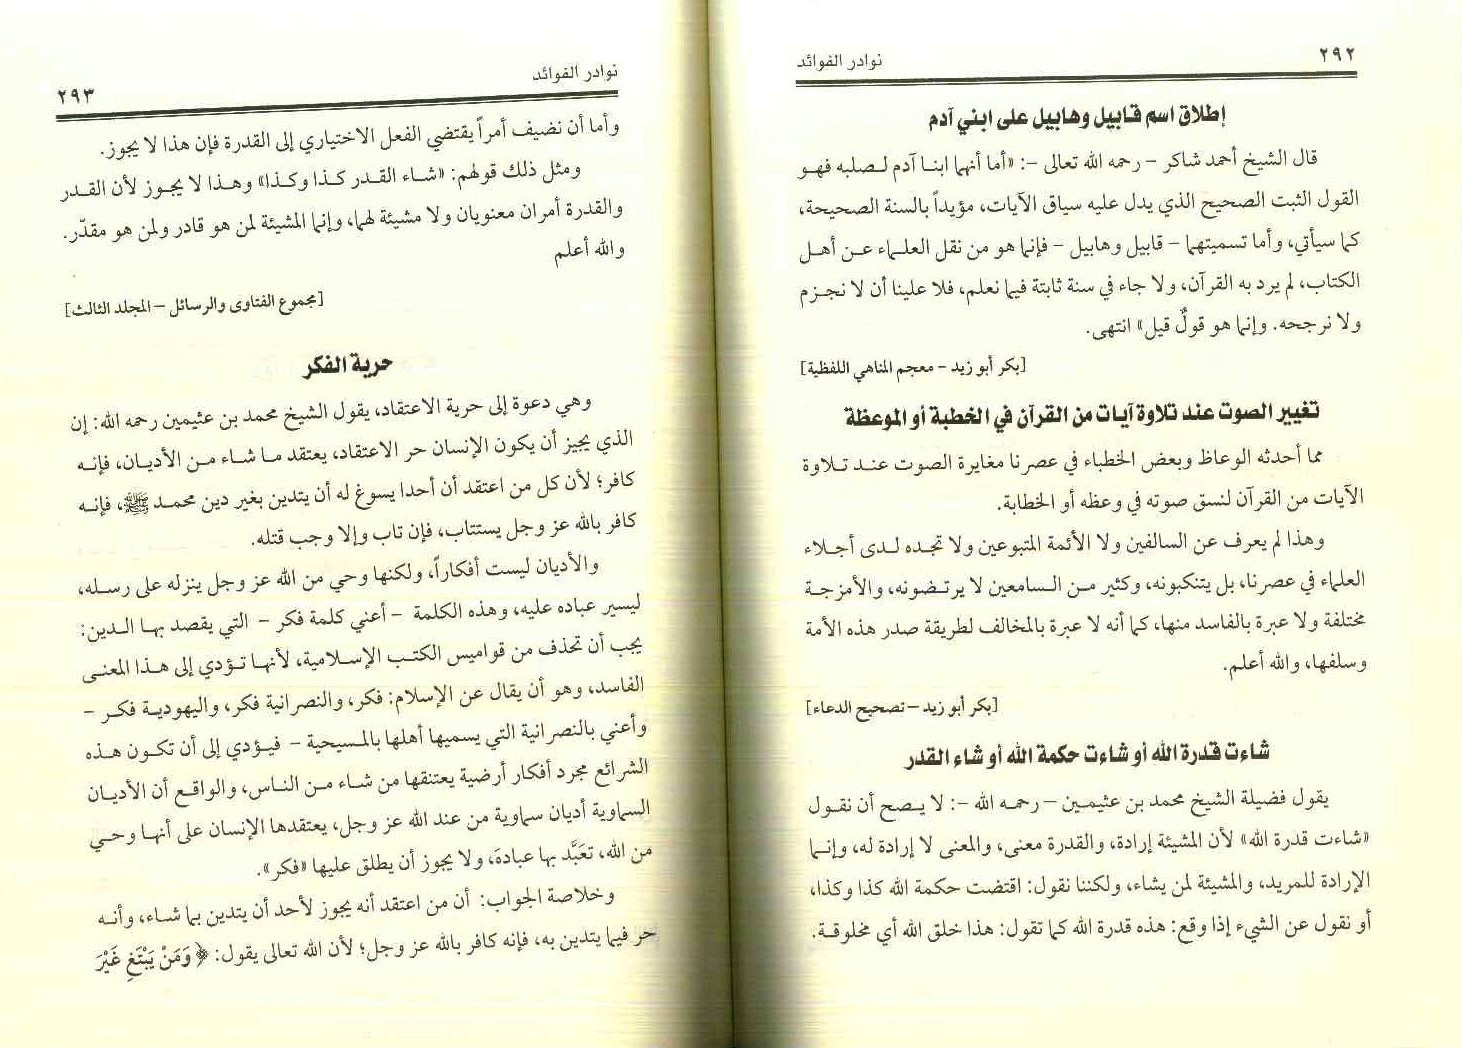 ٢٩٢
نوادر الفوائد
إطلاق اسم قابيل وهابيل على ابني آدم
قال الشيخ أحمد شاكر – رحمه الله تعالى –: «أما أنهما ابنا آدم لصلبه فهو
القول الثبت الصحيح الذي يدل عليه سياق الآيات، مؤيداً بالسنة الصحيحة،
كما سيأتي، وأما تسميتهما – قابيل وهابيل – فإنما هو من نقل العلماء عن أهل
الكتاب، لم يرد به القرآن، ولا جاء في سنة ثابتة فيما نعلم، فلا علينا أن لا نجزم
ولا نرجحه. وإنما هو قولٌ قيل» انتهى.
[بكر أبو زيد – معجم المناهي اللفظية]
تغيير الصوت عند تلاوة آيات من القرآن في الخطبة أو الموعظة
مما أحدثه الوعاظ وبعض الخطباء في عصرنا مغايرة الصوت عند تلاوة
الآيات من القرآن لنسق صوته في وعظه أو الخطابة.
وهذا لم يعرف عن السالفين ولا الأئمة المتبوعين ولا تجده لدى أجلاء
العلماء في عصرنا، بل يتنكبونه، وكثير من السامعين لا يرتضونه، والأمزجة
مختلفة ولا عبرة بالفاسد منها، كما أنه لا عبرة بالمخالف لطريقة صدر هذه الأمة
وسلفها، والله أعلم.
[بكر أبو زيد – تصحيح الدعاء]
شاءت قدرة الله أو شاءت حكمة الله أو شاء القدر
يقول فضيلة الشيخ محمد بن عثيمين – رحمه الله –: لا يصح أن نقول
«شاءت قدرة الله» لأن المشيئة إرادة، والقدرة معنى، والمعنى لا إرادة له، وإنما
الإرادة للمريد، والمشيئة لمن يشاء، ولكننا نقول: اقتضت حكمة الله كذا وكذا،
أو نقول عن الشيء إذا وقع: هذه قدرة الله كما تقول: هذا خلق الله أي مخلوقة.
نوادر الفوائد
٢٩٣
وأما أن نضيف أمراً يقتضي الفعل الاختياري إلى القدرة فإن هذا لا يجوز.
ومثل ذلك قولهم: «شاء القدر كذا وكذا» وهذا لا يجوز لأن القدر
والقدرة أمران معنويان ولا مشيئة لهما، وإنما المشيئة لمن هو قادر ولمن هو مقدّر.
والله أعلم
[مجموع الفتاوى والرسائل – المجلد الثالث]
حرية الفكر
وهي دعوة إلى حرية الاعتقاد، يقول الشيخ محمد بن عثيمين رحمه الله: إن
الذي يجيز أن يكون الإنسان حر الاعتقاد، يعتقد ما شاء من الأديان، فإنه
كافر؛ لأن كل من اعتقد أن أحدا يسوغ له أن يتدين بغير دين محمد ﷺ، فإنه
كافر بالله عز وجل يستتاب، فإن تاب وإلا وجب قتله.
والأديان ليست أفكاراً، ولكنها وحي من الله عز وجل ينزله على رسله،
ليسير عباده عليه، وهذه الكلمة – أعني كلمة فكر – التي يقصد بها الدين:
يجب أن تحذف من قواميس الكتب الإسلامية، لأنها تؤدي إلى هذا المعنى
الفاسد، وهو أن يقال عن الإسلام: فكر، والنصرانية فكر، واليهودية فكر –
وأعني بالنصرانية التي يسميها أهلها بالمسيحية – فيؤدي إلى أن تكون هذه
الشرائع مجرد أفكار أرضية يعتنقها من شاء من الناس، والواقع أن الأديان
السماوية أديان سماوية من عند الله عز وجل، يعتقدها الإنسان على أنها وحي
من الله، تعَبَّد بها عبادهَ، ولا يجوز أن يطلق عليها «فكر».
وخلاصة الجواب: أن من اعتقد أنه يجوز لأحد أن يتدين بما شاء، وأنه
حر فيما يتدين به، فإنه كافر بالله عز وجل؛ لأن الله تعالى يقول: ﴿ وَمَنْ يَبْتَغِ غَيْرَ